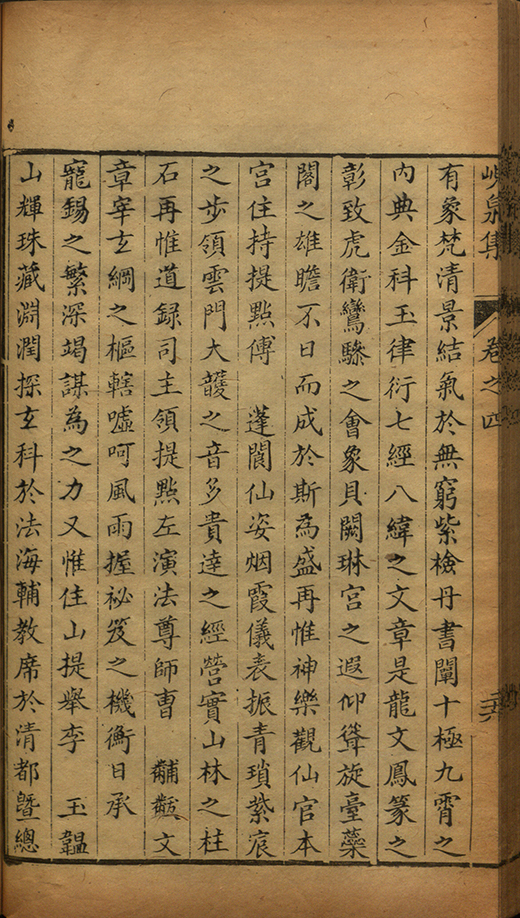 峴泉集 卷之四
有象梵清景結氣於無窮紫檢丹書闡十極九霄之
內典金科玉律衍七經八緯之文章是龍文鳳篆之
彰致虎衛鸞驂之會象貝闕琳宮之遐仰聳旋臺蘂
閣之雄瞻不日而成於斯為盛再惟神樂觀仙官本
宮住持提點傅 蓬閬仙姿烟霞儀表振青瑣紫宸
之步領雲門大頀之音多貴達之經營實山林之柱
石再惟道録司主領提點左演法尊師曺 黼黻文
章宰玄綱之樞轄噓呵風雨握祕笈之機衡日承
寵錫之繁深竭謀為之力又惟住山提舉李 玉韞
山輝珠藏淵潤探玄科於法海輔教席於清都曁總